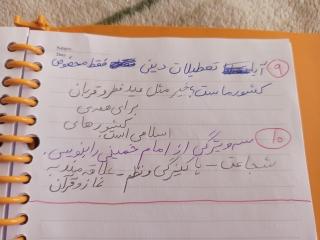 ۹ آیا تعطیلات دینی فقط مخصوص
کشور ماست؟ خیر مثل عید فطر و قربان
برای همه‌ی
کشورهای
اسلامی است.
۱۰ سه ویژگی از امام خمینی را بنویس.
شجاعت - پاکیزگی و نظم - علاقه‌مند به
نماز و قرآن